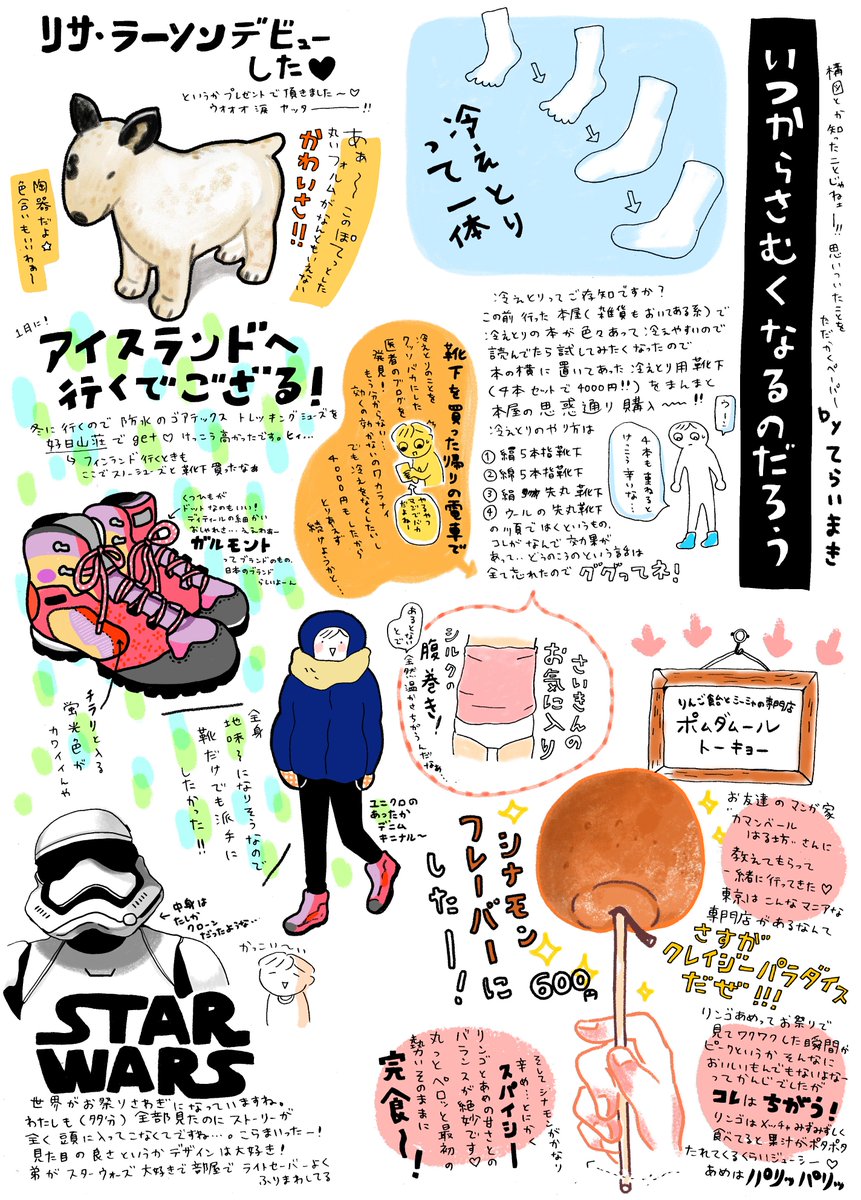 いつからさむくなるのだろう
構図とか知ったことじゃねェー!!思いついたことを
ただかくペーパー by てらいまき
リサ・ラーソンデビュー
した♥
というかプレゼントで頂きました〜♡
ウオオオ涙 ヤッター!!
あぁ〜このぽてっとした
丸いフォルムがなんともいえない
かわいさ!!
陶器だよ☆
色合いもいいわぁ〜
冷えとり
って一体
冷えとりってご存知ですか?
この前行った本屋(雑貨もおいてある系)で
冷えとりの本が色々あって冷えやすいので
読んでたら試してみたくなったので
本の横に置いてあった冷えとり用靴下
(4本セットで4000円!!)をまんまと
本屋の思惑通り購入〜!!
冷えとりのやり方は
①絹5本指靴下
②綿5本指靴下
③絹先丸靴下
④ウールの先丸靴下
の順ではくというもの。
コレがなんで効果が
あって…どうのこうのという
全て忘れたのでググってネ!
ウー!
4本も重ねると
けっこー辛いな…
靴下を買った帰りの電車で
冷えとりのことを
クッソバカにした
医者のブログを
発見!
もう分からない…
効くの効かないのワカラナイ
でも冷えをなくしたいし
4000円もしたから
とりあえず
続けようかと…
1月に!
アイスランドへ
行くでござる!
冬に行くので防水のゴアテックス トレッキングシューズを
好日山荘でget♡けっこう高かったです。ヒィ…
↳フィンランド行くときも
ここでスノーシューズと靴下買ったなぁ
くつひもが
ドットなのもいい!
ディティールの細かい
おしゃれさ…ええわぁー
ガルモント
ってブランドのもの。
日本のブランド
らしいよーん
チラリと入る
蛍光色が
カワイイんや
全身
地味〜になりそうなので
靴だけでも派手に
したかった!!
ユニクロの
あったか
デニム
キニナル〜
さいきんの
お気に入り
シルクの
腹巻き!
あるとないとで
全然温かさちがうんだなぁ…
りんご飴とシーシャの専門店
ポムダムール
トーキョー
お友達のマンガ家
カマンベール
はる坊。さんに
教えてもらって
一緒に行ってきた♡
東京はこんなマニアな
専門店があるなんて
さすが
クレイジーパラダイス
だぜ!!!
シナモン
フレーバーに
したー!
600円
リンゴあめってお祭りで
見てワクワクした瞬間が
ピークというかそんなに
おいしいもんでもないよなー
ってかんじでしたが
コレはちがう!
リンゴはメッチャみずみずしく
食べてると果汁がポタポタ
たれてくるくらいジューシー♡
あめはパリッパリッ
そしてシナモンがかなり
辛め…とにかく
スパイシー
リンゴとあめの甘さとの
バランスが絶妙です♡
丸っとペロッと最初の
勢いそのままに
完食〜!
←中身は
たしか
クローン
だったような…
かっこい〜い
STAR
WARS
世界がお祭りさわぎになっていますね。
わたしも(多分)全部見たのにストーリーが
全く頭に入ってこなくてですね…。こらまいったー!
見た目の良さというかデザインは大好き!
弟がスターウォーズ大好きで部屋でライトセーバーよく
ふりまわしてる